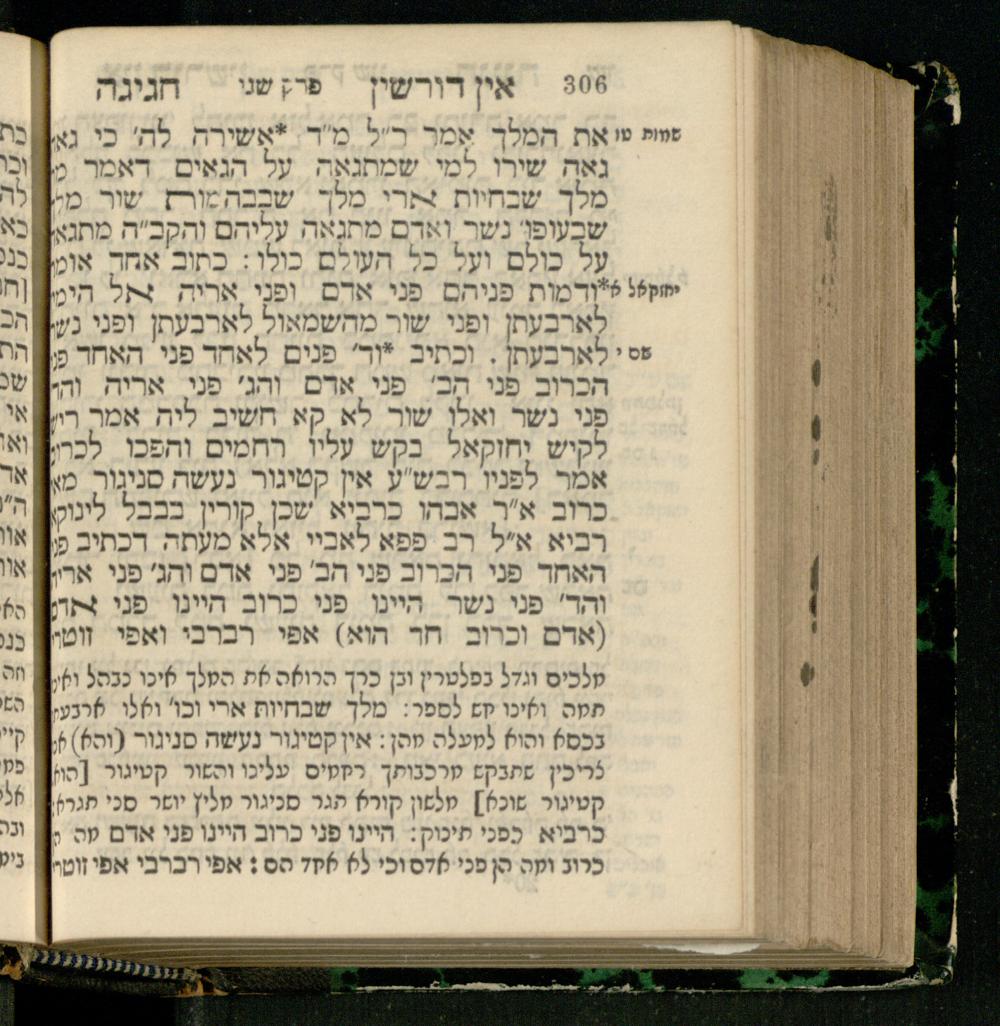 306 אין דורשין פרק שני חגיגה
שמות טו את המלך אמר ר״ל מ״ד *אשירה לה׳ כי גאה
גאה שירו למי שמתגאה על הגאים דאמר מר
מלך שבחיות ארי מלך שבבהמות שור מלך
שבעופו׳ נשר ואדם מתגאה עליהם והקב״ה מתגאה
על כולם ועל כל העולם כולו: כתוב אחד אומר
יחזקאל א *ודמות פניהם פני אדם ופני אריה אל הימין
לארבעתן ופני שור מהשמאול לארבעתן ופני נשר
שם י לארבעתן. וכתיב *וד׳ פנים לאחד פני האחד פני
הכרוב פני הב׳ פני אדם והג׳ פני אריה והד׳
פני נשר ואלו שור לא קא חשיב ליה אמר ריש
לקיש יחזקאל בקש עליו רחמים והפכו לכרוב
אמר לפניו רבש״ע אין קטיגור נעשה סניגור מאי
כרוב א״ר אבהו כרביא שכן קורין בבבל לינוקא
רביא א״ל רב פפא לאביי אלא מעתה דכתיב פני
האחד פני הכרוב פני הב׳ פני אדם והג׳ פני אריה
והד׳ פני נשר היינו פני כרוב היינו פני אדם
(אדם וכרוב חד הוא) אפי רברבי ואפי זוטרי
מלכים וגדל בפלטרין ובן כרך הרואה את המלך אינו נבהל ואינו
תמה ואינו חש לספר: מלך שבחיות ארי וכו׳ ואלו ארבעתן
בכסא והוא למעלה מהן: אין קטיגור נעשה סניגור (והא)
צריכין שתבקש מרכבותך רחמים עלינו והשור קטיגור [הוא
קטיגור שונא] מלשון קורא תגר סניגור מליץ יושר
כרביא כפני תינוק: היינו פני כרוב היינו פני אדם מה
כרוב ומה הן פני אדם וכי לא אחד הם: אפי רברבי אפי זוטרי